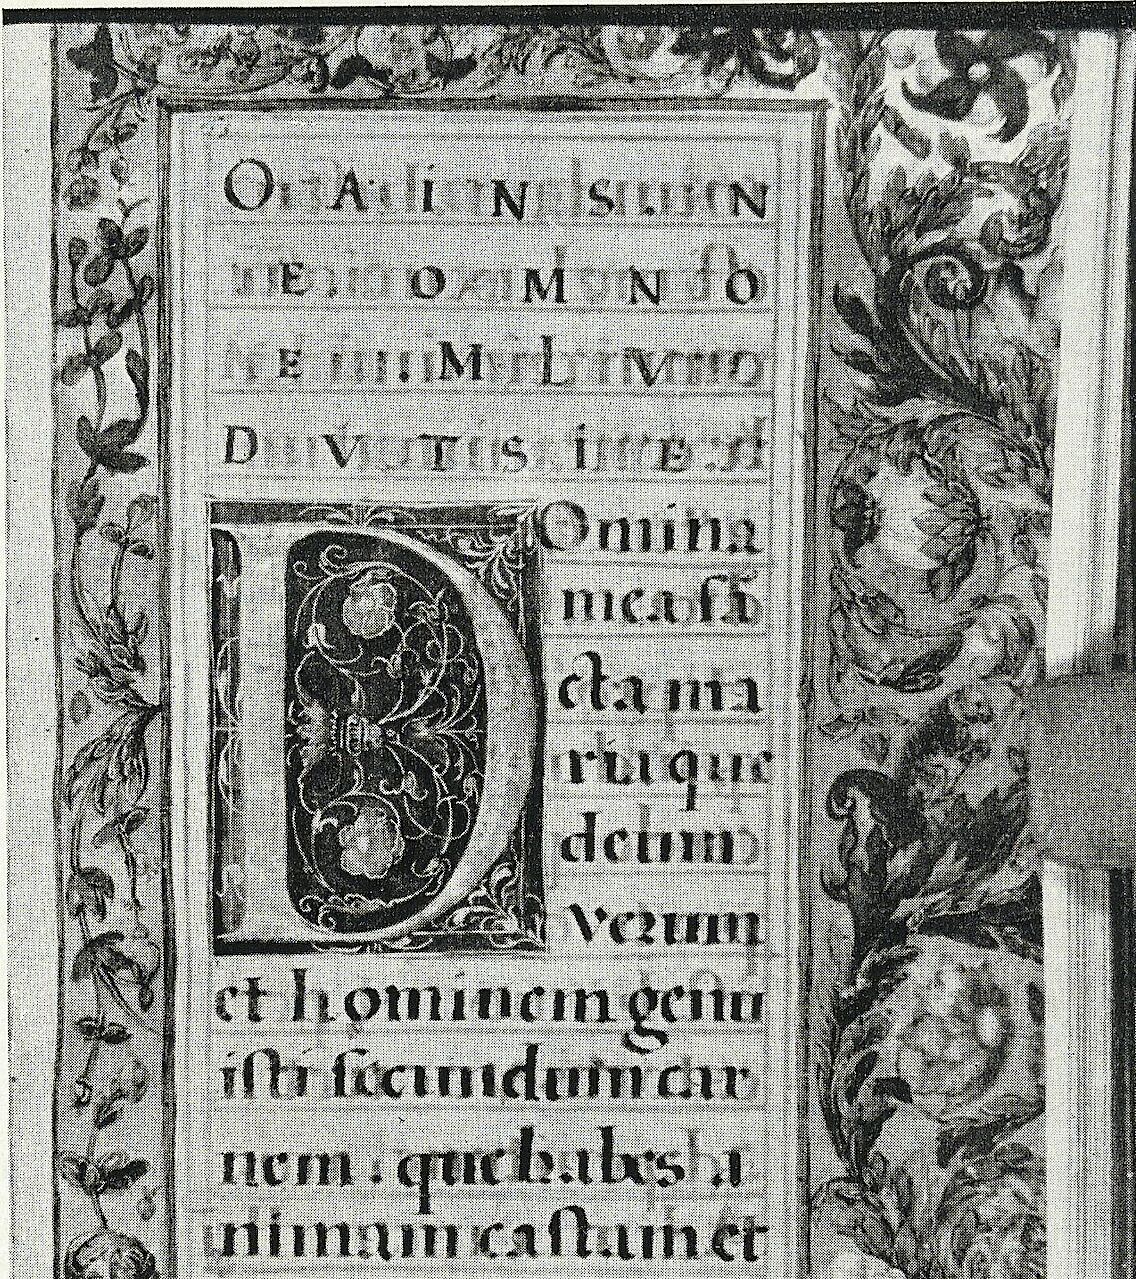 O A i N S. N
E. O M N O
E . M L V
D V T S i E.
DOmina
mea sã
cta ma
ria que
deum
verum
et hominem genu
isti secundum car
nem . que habes a
nimam castam et